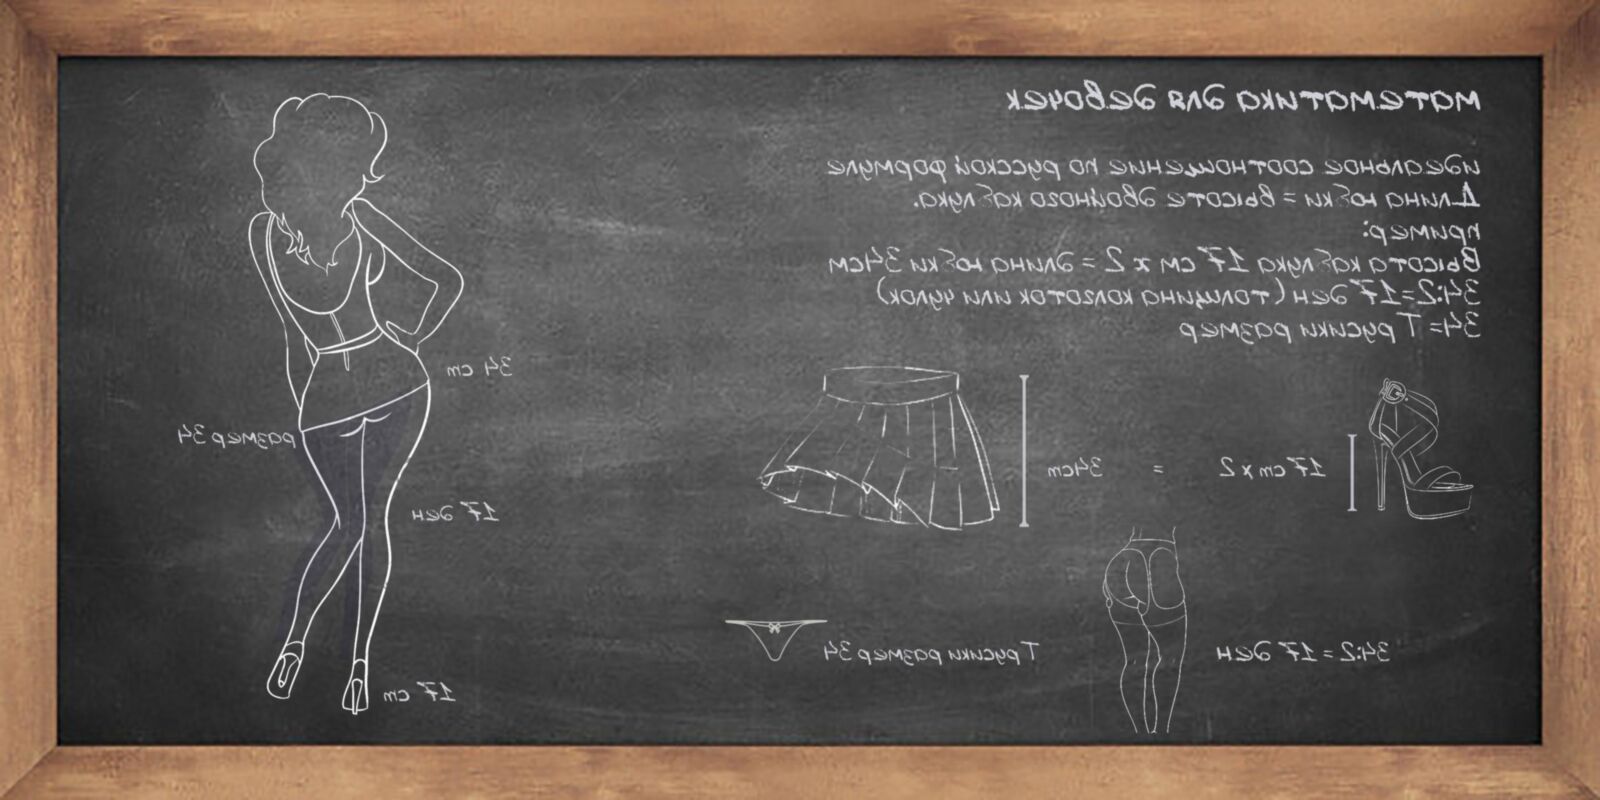 математика для девочек
идеальное соотношение по русской формуле
Длина юбки = высоте двойного каблука.
пример:
Высота каблука 17 см x 2 = длина юбки 34см
34:2=17 ден (толщина колготок или чулок)
34= Т русики размер
17 cm x 2 = 34cm
34:2 = 17 ден
Т русики размер 34
34 cm
размер 34
17 ден
17 cm